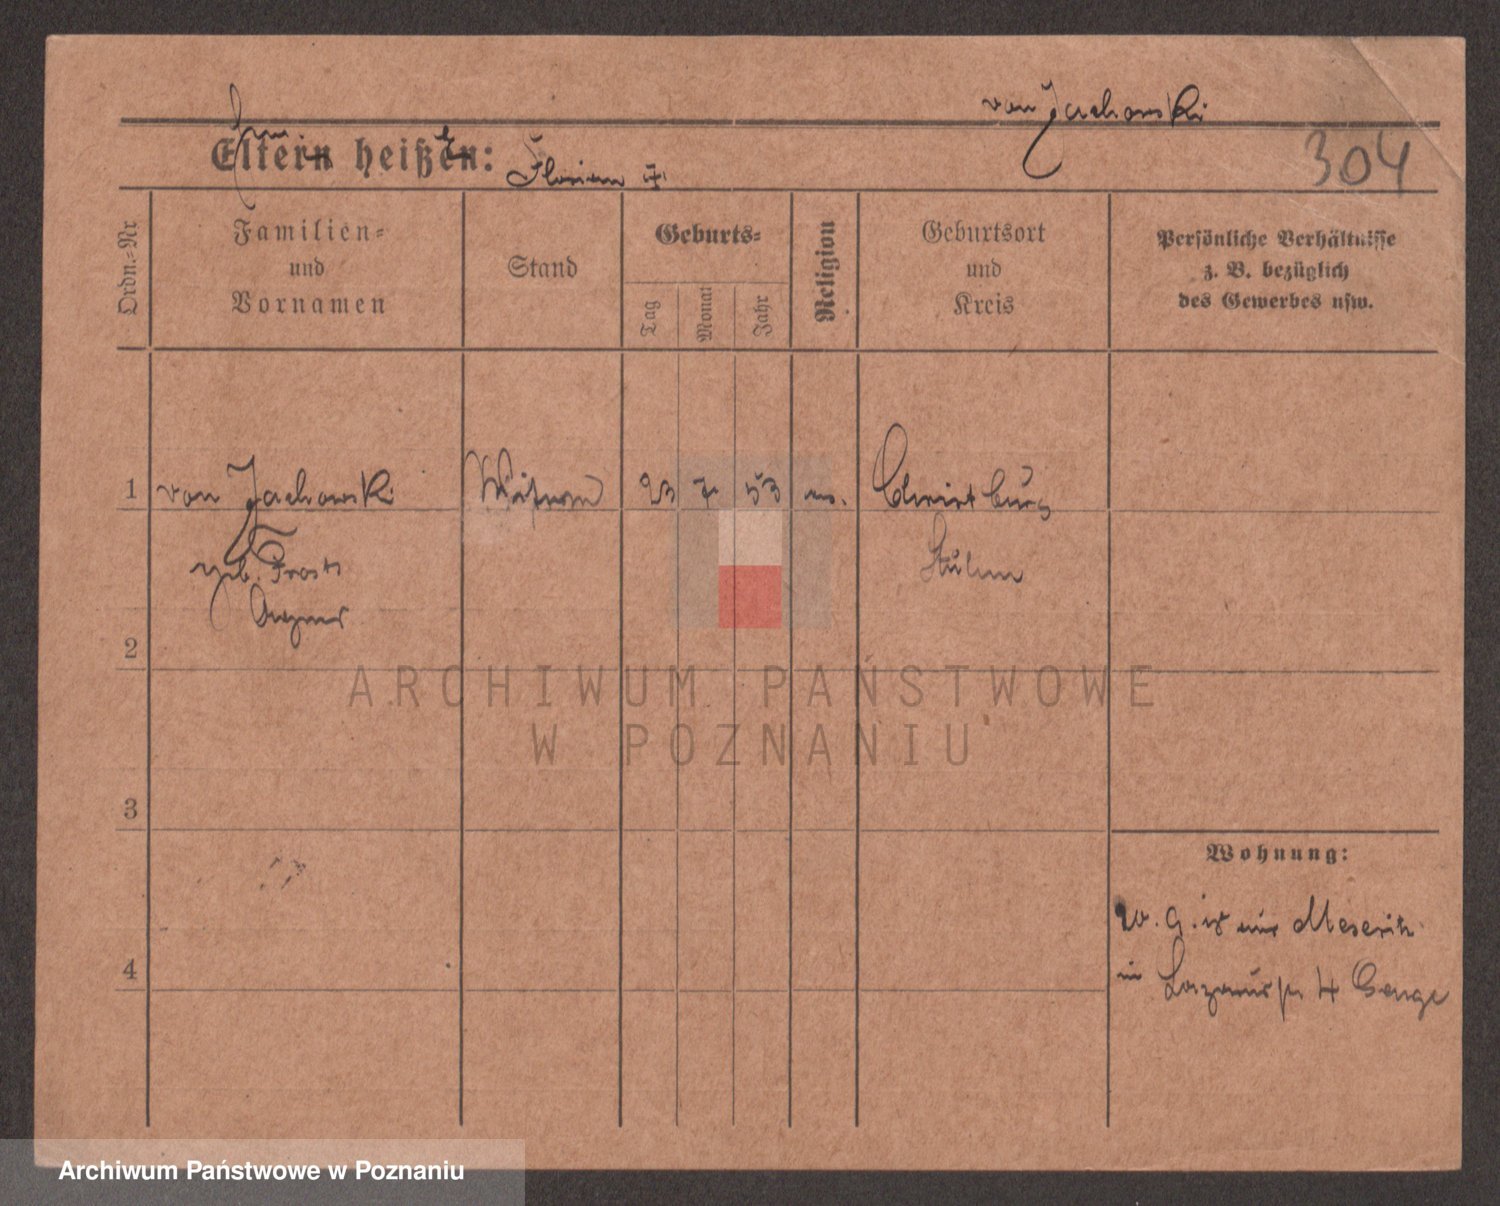 von Jachowski
304
Eltern heißen: Florian
Ordn.-Nr
Familien-
und
Vornamen
Stand
Geburts-
Tag
Monat
Jahr
Religion
Geburtsort
und
Kreis
Persönliche Verhältnisse
z. B. bezüglich
des Gewerbes usw.
1 von Jachowski 23 7. 53 Christburg
geb. Stuhm
2
3
Wohnung:
Meseritz
4
ARCHIWUM PAŃSTWOWE
W POZNANIU
Archiwum Państwowe w Poznaniu